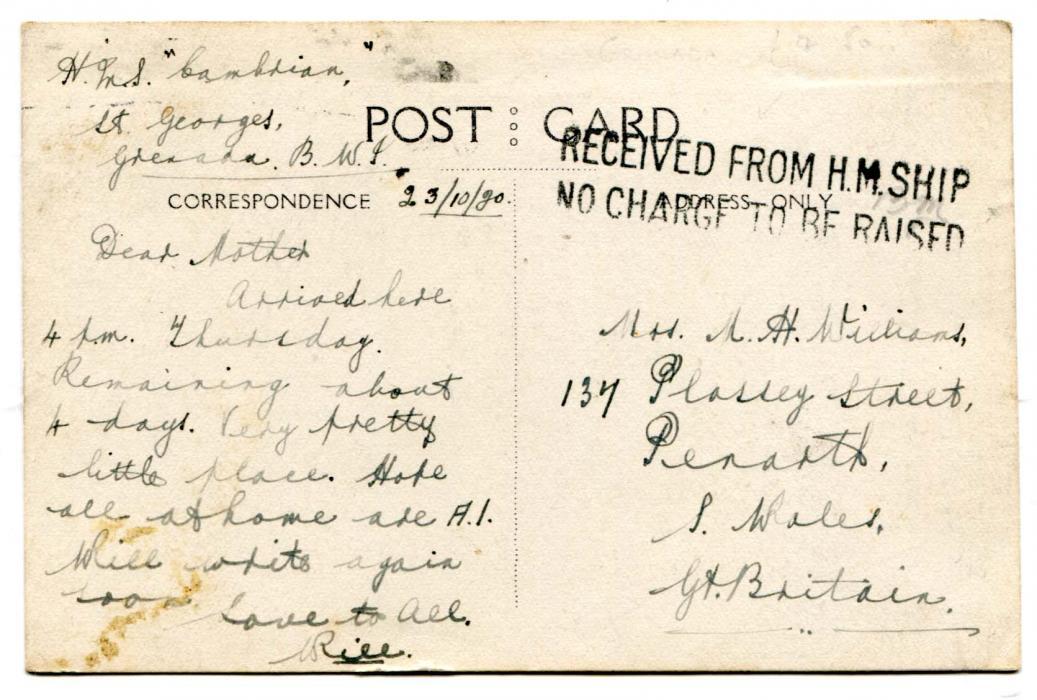 H.M.S. "Cambrian,"
St. Georges,
Grenada. B.W.I.
POST CARD
RECEIVED FROM H.M. SHIP
NO CHARGE TO BE RAISED
CORRESPONDENCE
ADDRESS ONLY
23/10/30.
Dear Mother
Arrived here
4 p.m. Thursday.
Remaining about
4 days. Very pretty
little place. Hope
all at home are A.1.
Will write again
soon
Love to All.
Will.
Mrs. M. H. Williams,
137 Plassey Street,
Penarth,
S. Wales,
Gt. Britain.